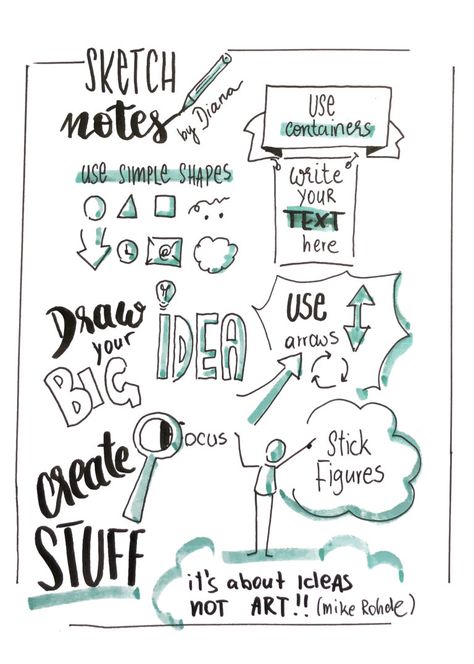 SKETCH
notes
by Diana
USE
containers
USE SIMPLE SHAPES
write
YOUR
TEXT
here
@
Draw
your
BIG
IDEA
USE
arrows
Focus
create
STUFF
Stick
Figures
it's about IdEAS
NOT ART!! (mike Rohde)